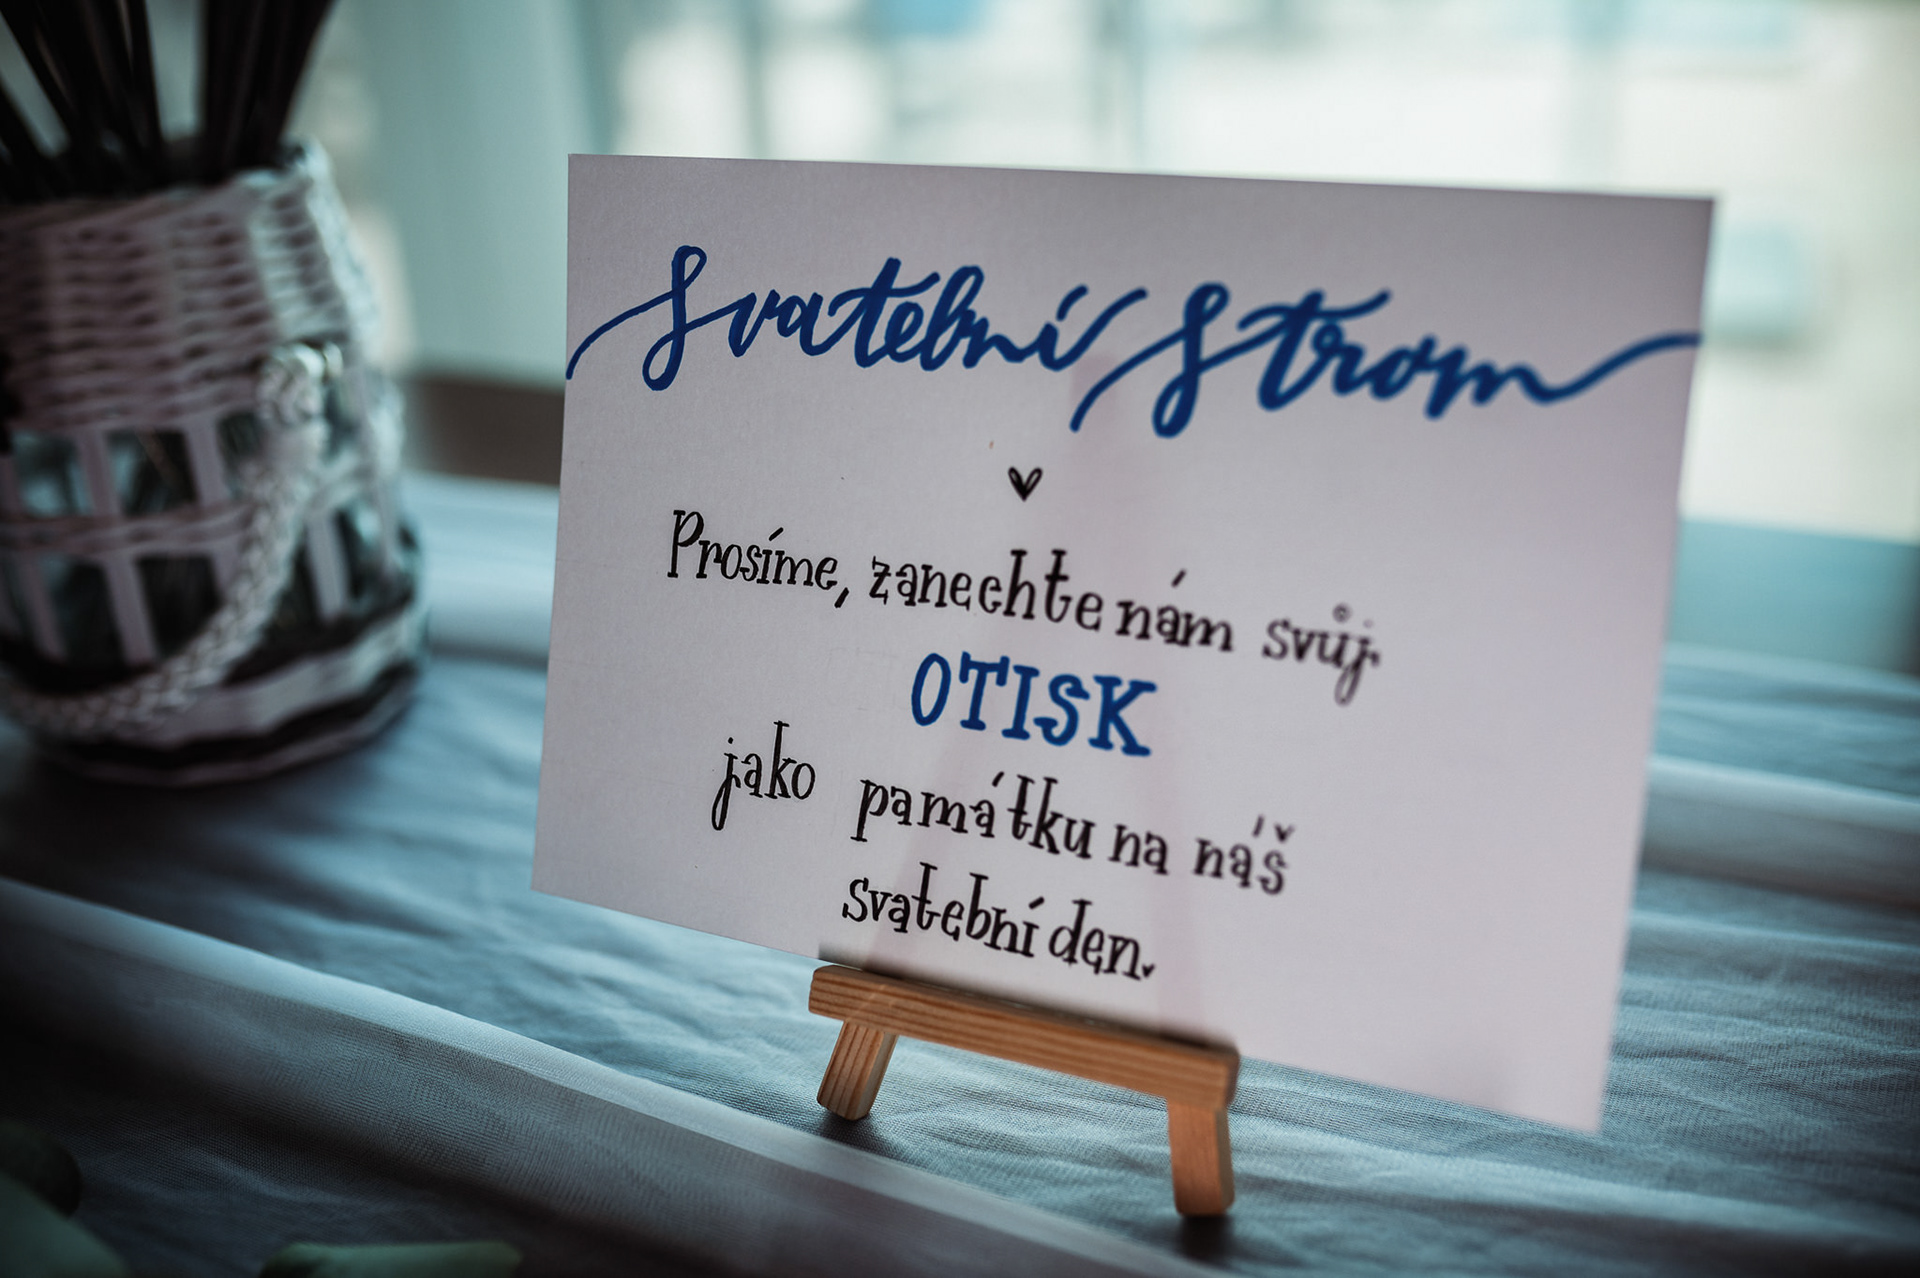 Svatební Strom
Prosíme, zanechte nám svůj
OTISK
jako památku na náš
svatební den.